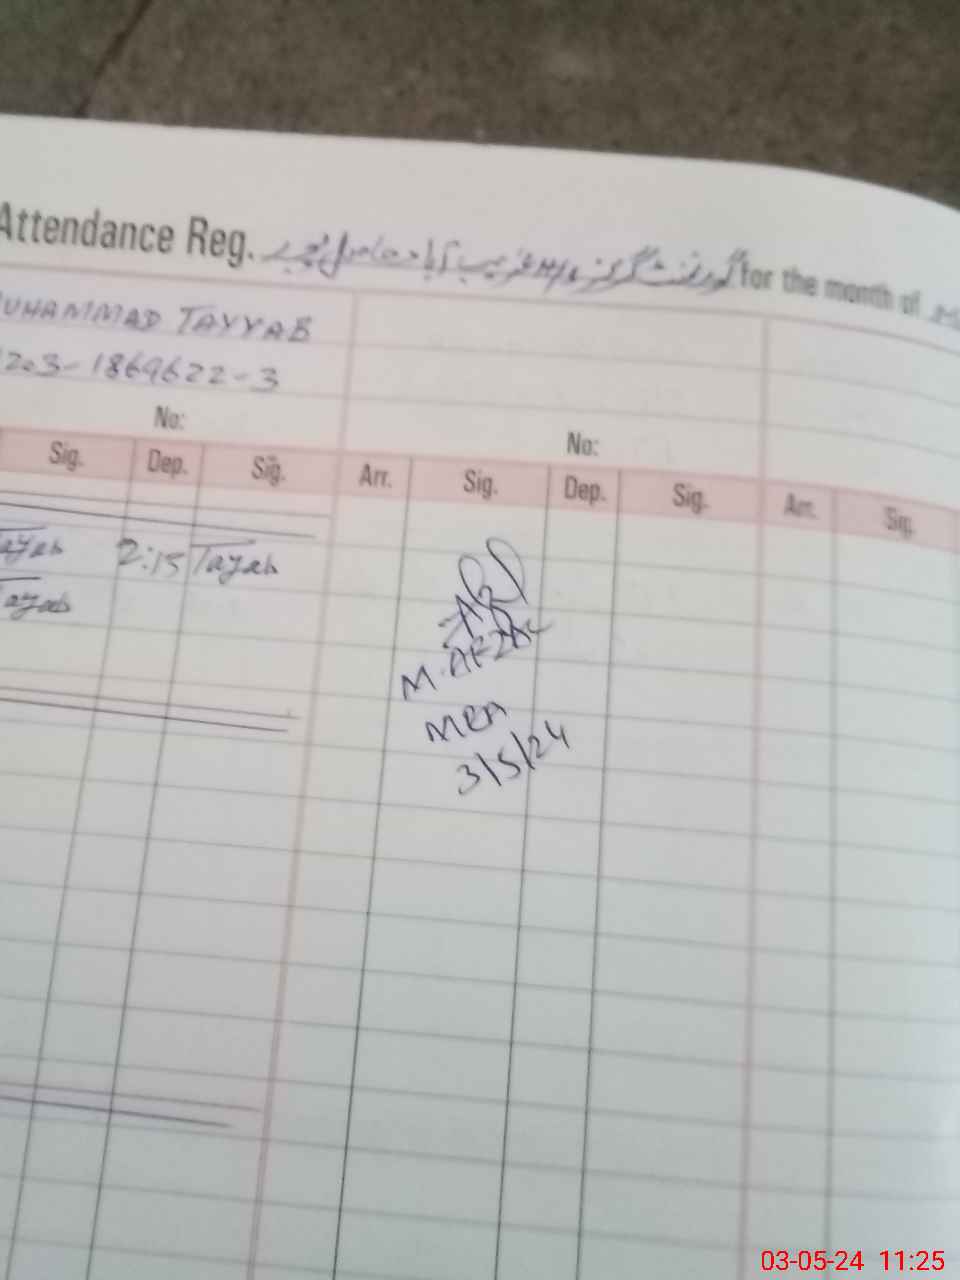 Attendance Reg. گورنمنٹ گرلز for the month of
UHAMMAD TAYYAB
203-1869622-3
No:
No:
Sig. Dep. Sig. Arr. Sig. Dep. Sig. Arr. Sig.
Tayab 2:15 Tayab
Tayab
M. AFZAL
MEA
3/5/24
03-05-24 11:25